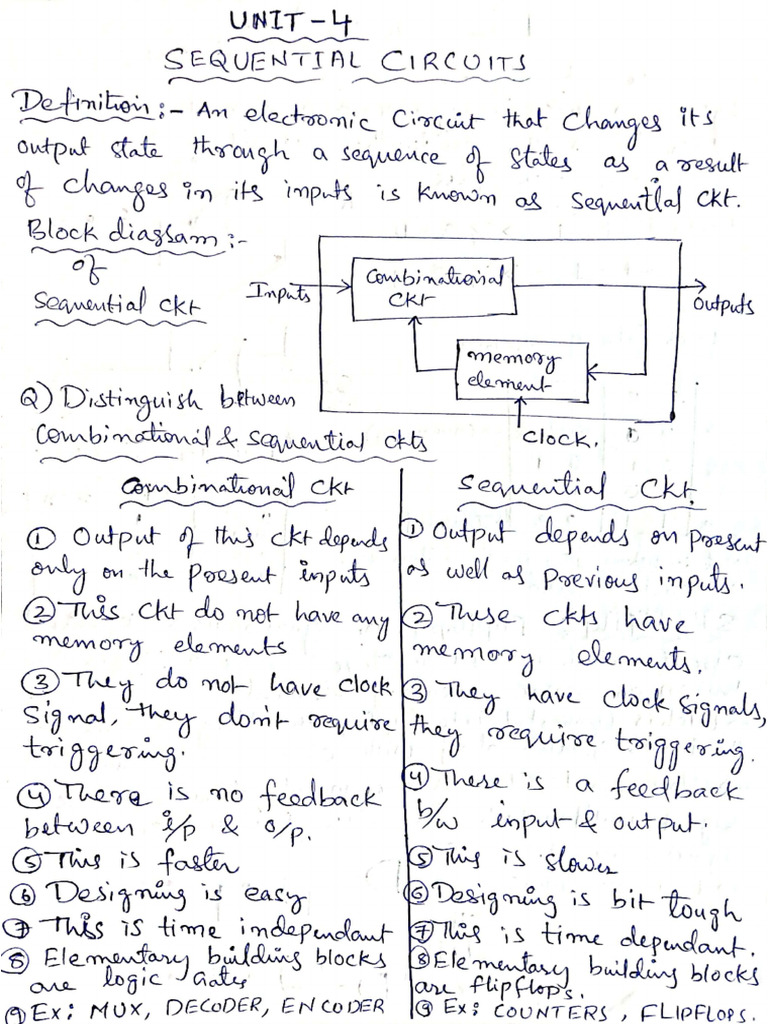 UNIT-4
SEQUENTIAL CIRCUITS
Definition:- An electronic Circuit that changes its
output state through a sequence of states as a result
of changes in its inputs is known as Sequential Ckt.
Block diagram:-
of
Sequential Ckt
Inputs
Combinational
CKt
Outputs
memory
element
Clock.
Q) Distinguish between
Combinational & Sequential ckts
Combinational Ckt
① Output of this Ckt depends
only on the present inputs
② This Ckt do not have any
memory elements
③ They do not have clock
Signal, they don't require
triggering.
④ There is no feedback
between i/p & o/p.
⑤ This is faster
⑥ Designing is easy
⑦ This is time independant
⑧ Elementary building blocks
are logic Gates
⑨ Ex: MUX, DECODER, ENCODER
Sequential Ckt.
① Output depends on present
as well as previous inputs.
② These ckts have
memory elements.
③ They have clock signals,
they require triggering.
④ There is a feedback
b/w input & output.
⑤ This is slower
⑥ Designing is bit tough
⑦ This is time dependant.
⑧ Elementary building blocks
are flipflops.
⑨ Ex: COUNTERS, FLIPFLOPS.